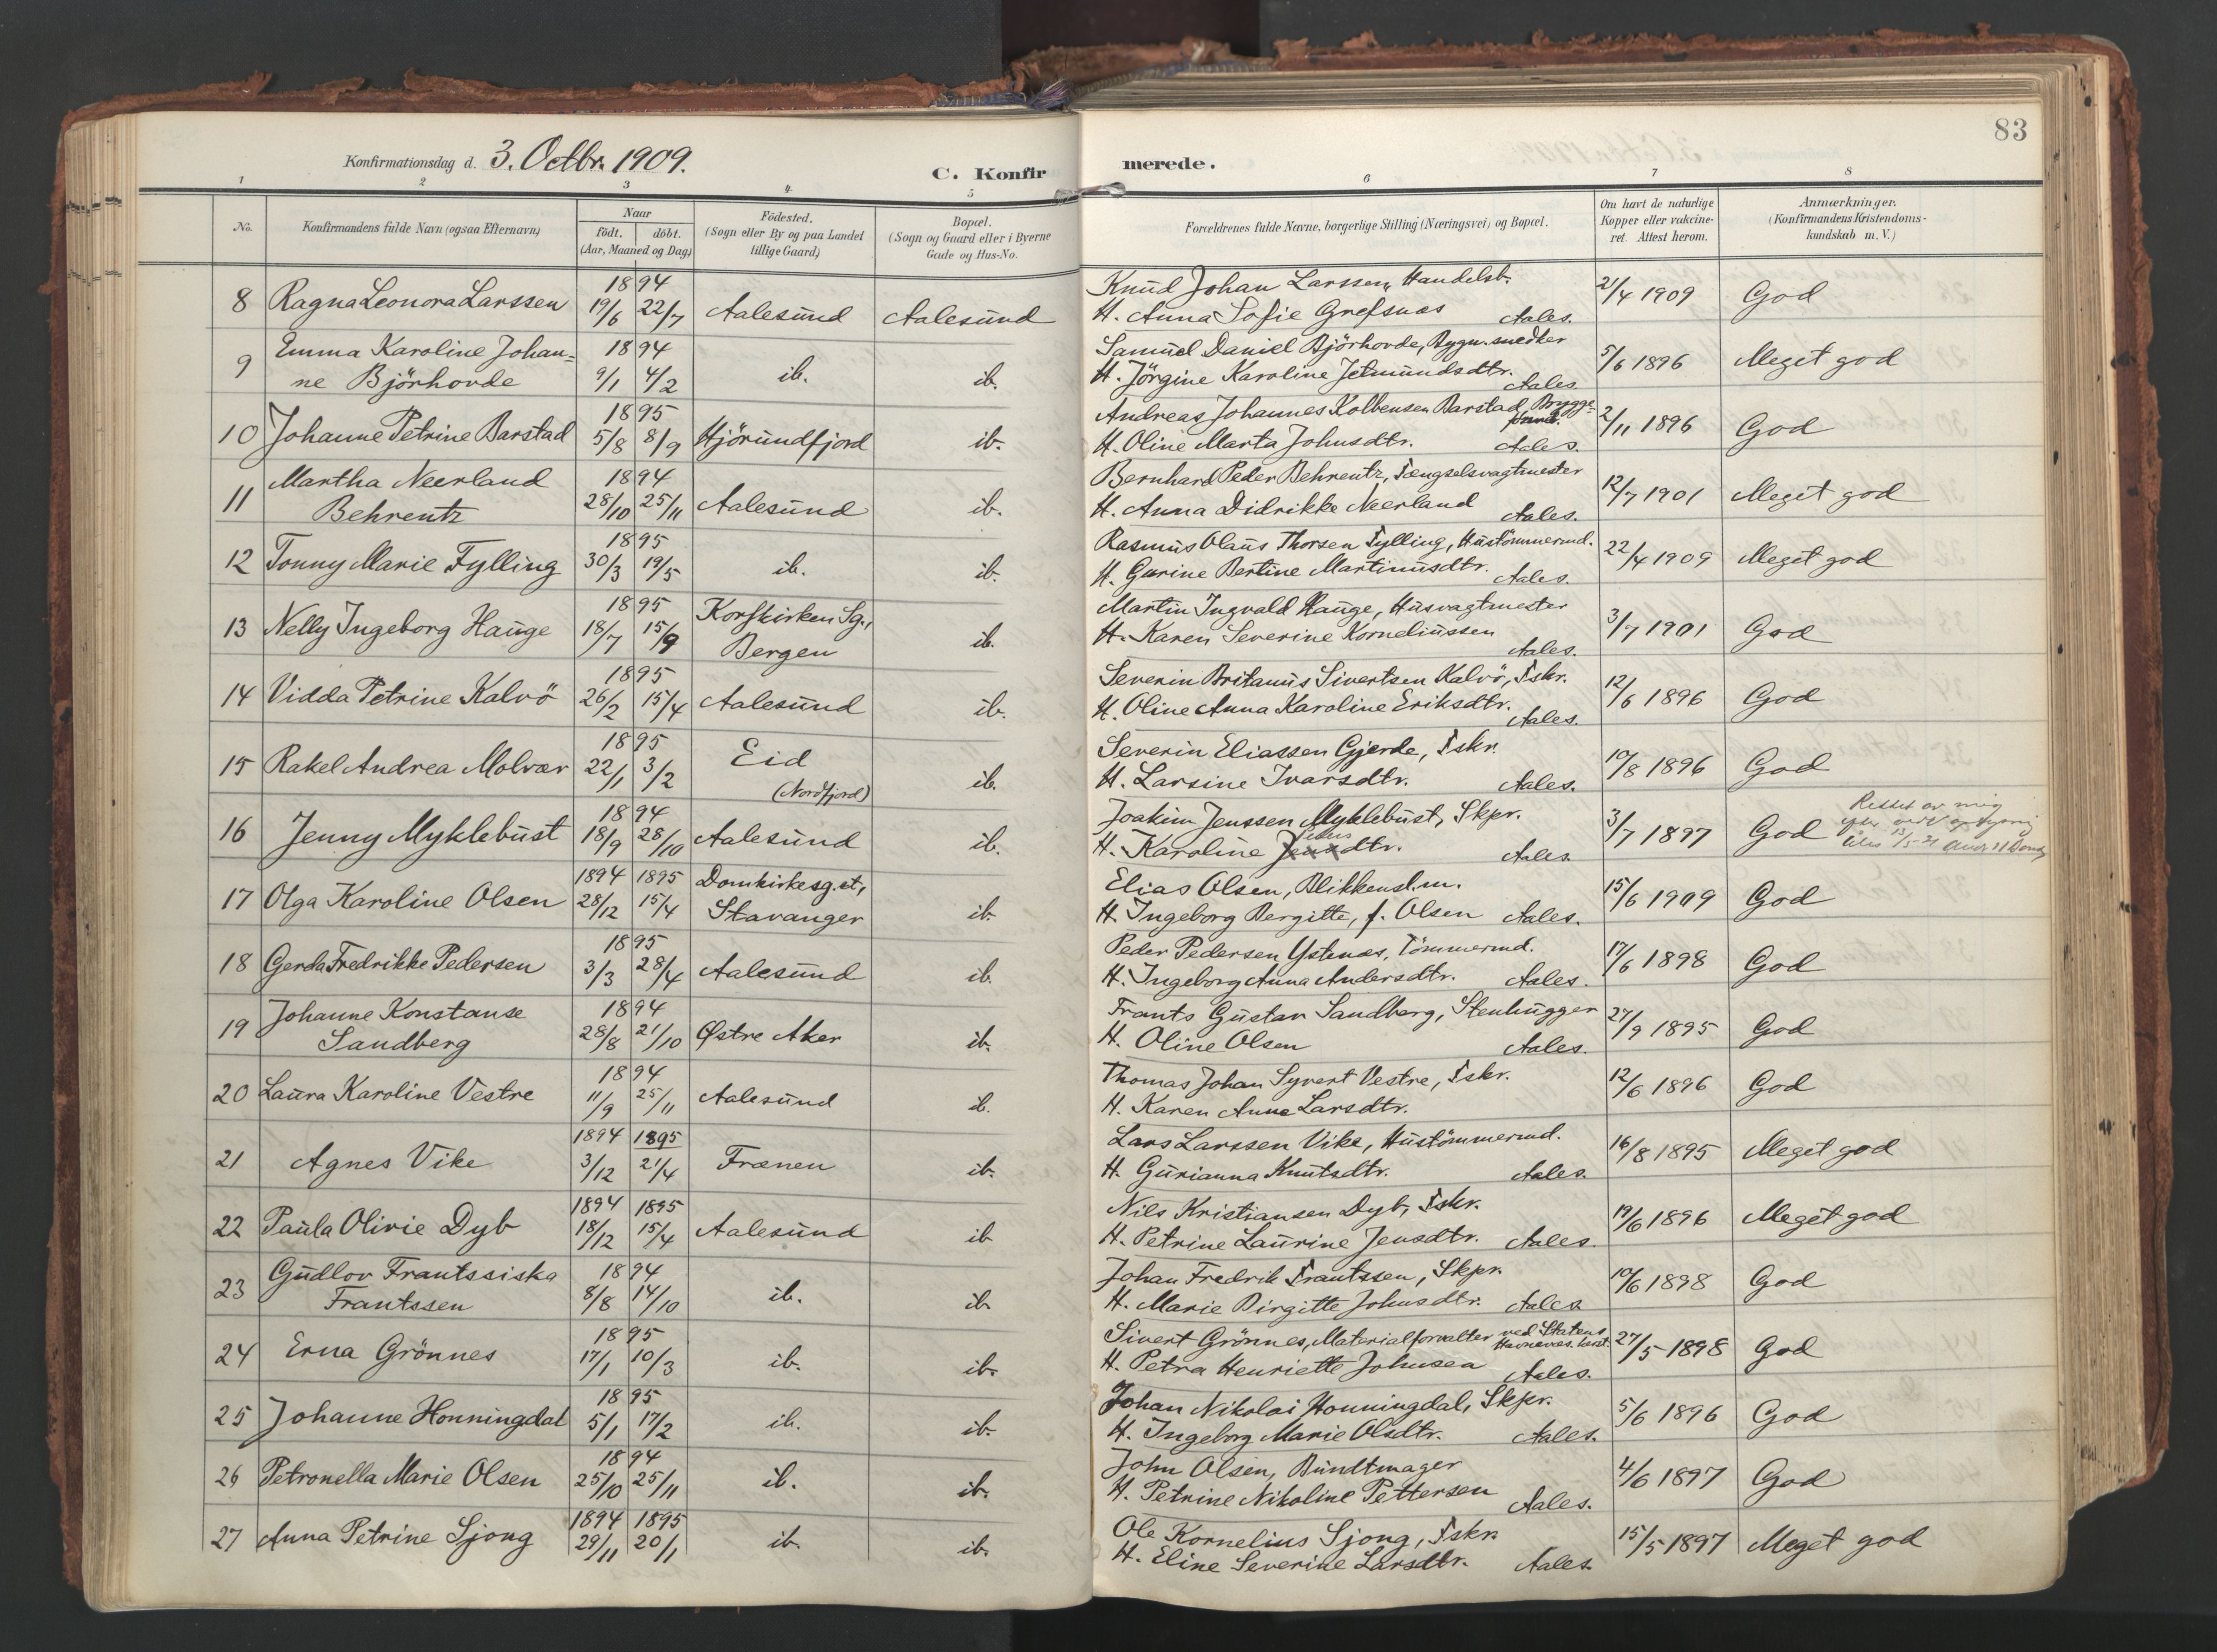 83
Konfirmationsdag d. 3. Octbr. 1909.
C. Konfirmerede.
1 2 3 4 5 6 7 8
No.
Konfirmandens fulde Navn (ogsaa Efternavn)
Naar
födt. döbt.
(Aar, Maaned og Dag)
Födested.
(Sogn eller By og paa Landet
tillige Gaard)
Bopæl.
(Sogn og Gaard eller i Byerne
Gade og Hus-No.
Forældrenes fulde Navne, borgerlige Stilling (Næringsvei) og Bopæl.
Om havt de naturlige
Kopper eller vakcine-
ret. Attest herom.
Anmærkninger.
(Konfirmandens Kristendoms-
kundskab m. V.)
1894 Knud Johan Larssen, Handelsb.
8 Ragna Leonora Larssen 19/6 22/7 Aalesund Aalesund H. Anna Sofie Grefsnæs Aales. 21/4 1909 God
Emma Karoline Johan= 1894 Samuel Daniel Björhovde, Bygn.snedker
9 ne Björhovde 9/1 4/2 ib. ib. H. Jörgine Karoline Jetmundsdtr. Aales. 5/6 1896 Meget god
1895 Andreas Johannes Kolbensen Barstad, Brygge=
10 Johanne Petrine Barstad 5/8 8/9 Hjörundfjord ib. H. Oline Marta Johnsdtr. Aales. 2/11 1896 God
Martha Neerland 1894 Bernhard Peder Behrentz, Fængselsvagtmester
11 Behrentz 28/10 25/11 Aalesund ib. H. Anna Didrikke Neerland Aales. 12/7 1901 Meget god
1895 Rasmus Olaus Thorsen Fylling, Hustömmermd.
12 Tonny Marie Fylling 30/3 19/5 ib. ib. H. Gurine Bertine Martinusdtr. Aales. 22/4 1909 Meget god
1895 Korskirken Sg., Martin Ingvald Hauge, Husvagtmester
13 Nelly Ingeborg Hauge 18/7 15/9 Bergen ib. H. Karen Severine Korneliussen Aales. 3/7 1901 God
1895 Severin Britanus Sivertsen Kalvö, Fskr.
14 Vidda Petrine Kalvö 26/2 15/4 Aalesund ib. H. Oline Anna Karoline Eriksdtr. Aales. 12/6 1896 God
1895 Eid Severin Eliassen Gjerde, Fskr.
15 Rakel Andrea Molvær 22/1 3/2 (Nordfjord) ib. H. Larsine Ivarsdtr. Aales. 10/8 1896 God
1894 Joakim Jenssen Myklebust, Skpr.
16 Jenny Myklebust 18/9 28/10 Aalesund ib. H. Karoline Jensdtr. Aales. 3/7 1897 God
Rettet av mig
1894 1895 Domkirkesg.et, Elias Olsen, Blikkensl.m.
17 Olga Karoline Olsen 28/12 15/4 Stavanger ib. H. Ingeborg Bergitte, f. Olsen Aales. 15/6 1909 God
1895 Peder Pedersen Ystenæs, Tömmermd.
18 Gerda Fredrikke Pedersen 3/3 28/4 Aalesund ib. H. Ingeborg Anna Andersdtr. Aales. 17/6 1898 God
Johanne Konstanse 1894 Frants Gustav Sandberg, Stenhugger
19 Sandberg 28/8 21/10 Østre Aker ib. H. Oline Olsen Aales. 27/9 1895 God
1894 Thomas Johan Syvert Vestre, Fskr.
20 Laura Karoline Vestre 11/9 25/11 Aalesund ib. H. Karen Anne Larsdtr. 12/6 1896 God
1894 1895 Lars Larssen Vike, Hustömmermd.
21 Agnes Vike 3/12 21/4 Frænen ib. H. Gurianna Knutsdtr. Aales. 16/8 1895 Meget god
1894 1895 Nils Kristiansen Dyb, Fskr.
22 Paula Olivie Dyb 18/12 15/4 Aalesund ib H. Petrine Laurine Jensdtr. Aales. 19/6 1896 Meget god
Gudlov Frantssiska 1894 Johan Fredrik Frantssen, Skpr.
23 Frantssen 8/8 14/10 ib. ib. H. Marie Birgitte Johnsdtr. Aales. 10/6 1898 God
1895 Sivert Grönnes, Materialforvalter ved Statens Havnevæs.
24 Erna Grönnes 17/1 10/3 ib. ib. H. Petra Henriette Johnsen Aales. 27/5 1898 God
1895 Johan Nikolai Honningdal, Skpr.
25 Johanne Honningdal 5/1 17/2 ib. ib. H. Ingeborg Marie Olsdtr. Aales. 5/6 1896 God
1894 John Olsen, Bundtmager
26 Petronella Marie Olsen 25/10 25/11 ib. ib. H. Petrine Nikoline Pettersen Aales. 4/6 1897 God
1894 1895 Ole Kornelius Sjong, Fskr.
27 Anna Petrine Sjong 29/11 20/1 ib. ib. H. Eline Severine Larsdtr. Aales. 15/5 1897 Meget god